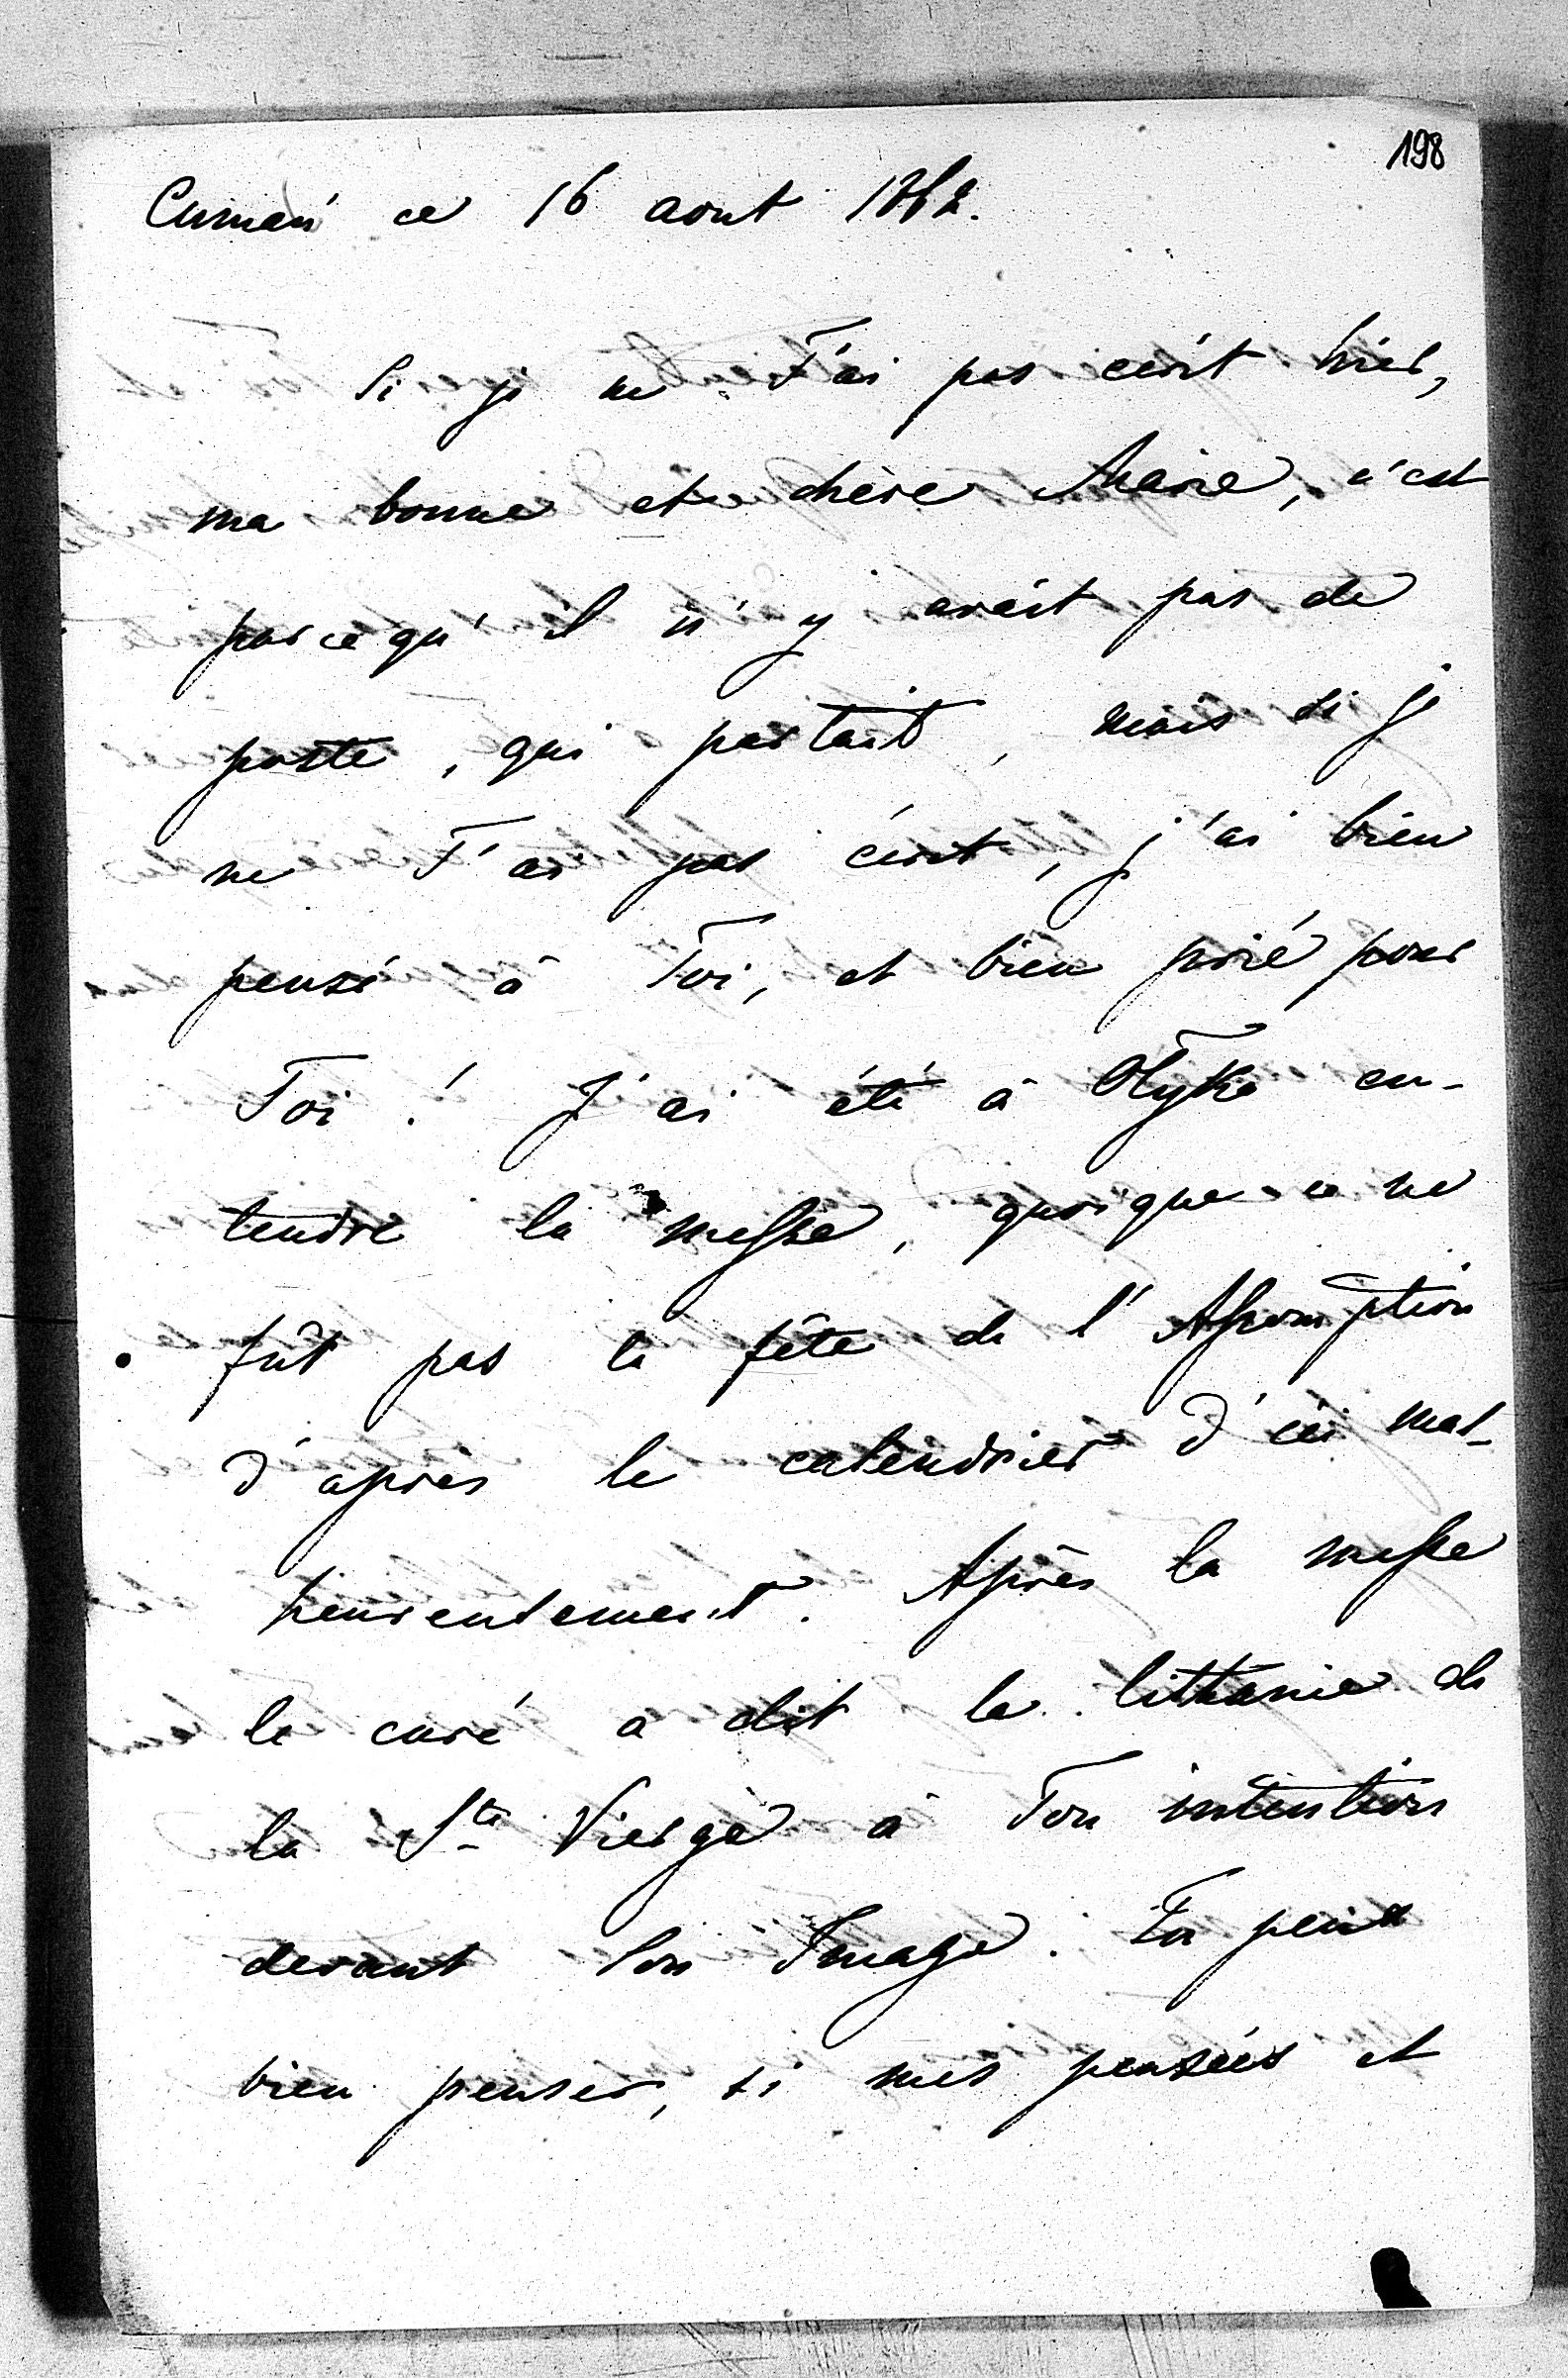 198
Cumań ce 16 aout 1862.
Si je ne T'ai pas écrit hier,
ma bonne et chère Marie, c'est
parcequ'il n'y avait pas de
poste, qui partait, mais si je
ne T'ai pas écrit, j'ai bien
pensé à Toi, et bien prié pour
Toi ! J'ai été à Ołyka en-
tendre la messe, quoique ce ne
fût pas la fête de l'Assomption
d'après le calendrier d'ici mal-
heureusement. Après la messe
le curé a dit la litthanie de
la Ste Vierge à Ton intention
devant Son Image. Tu peux
bien penser, si mes pensées et